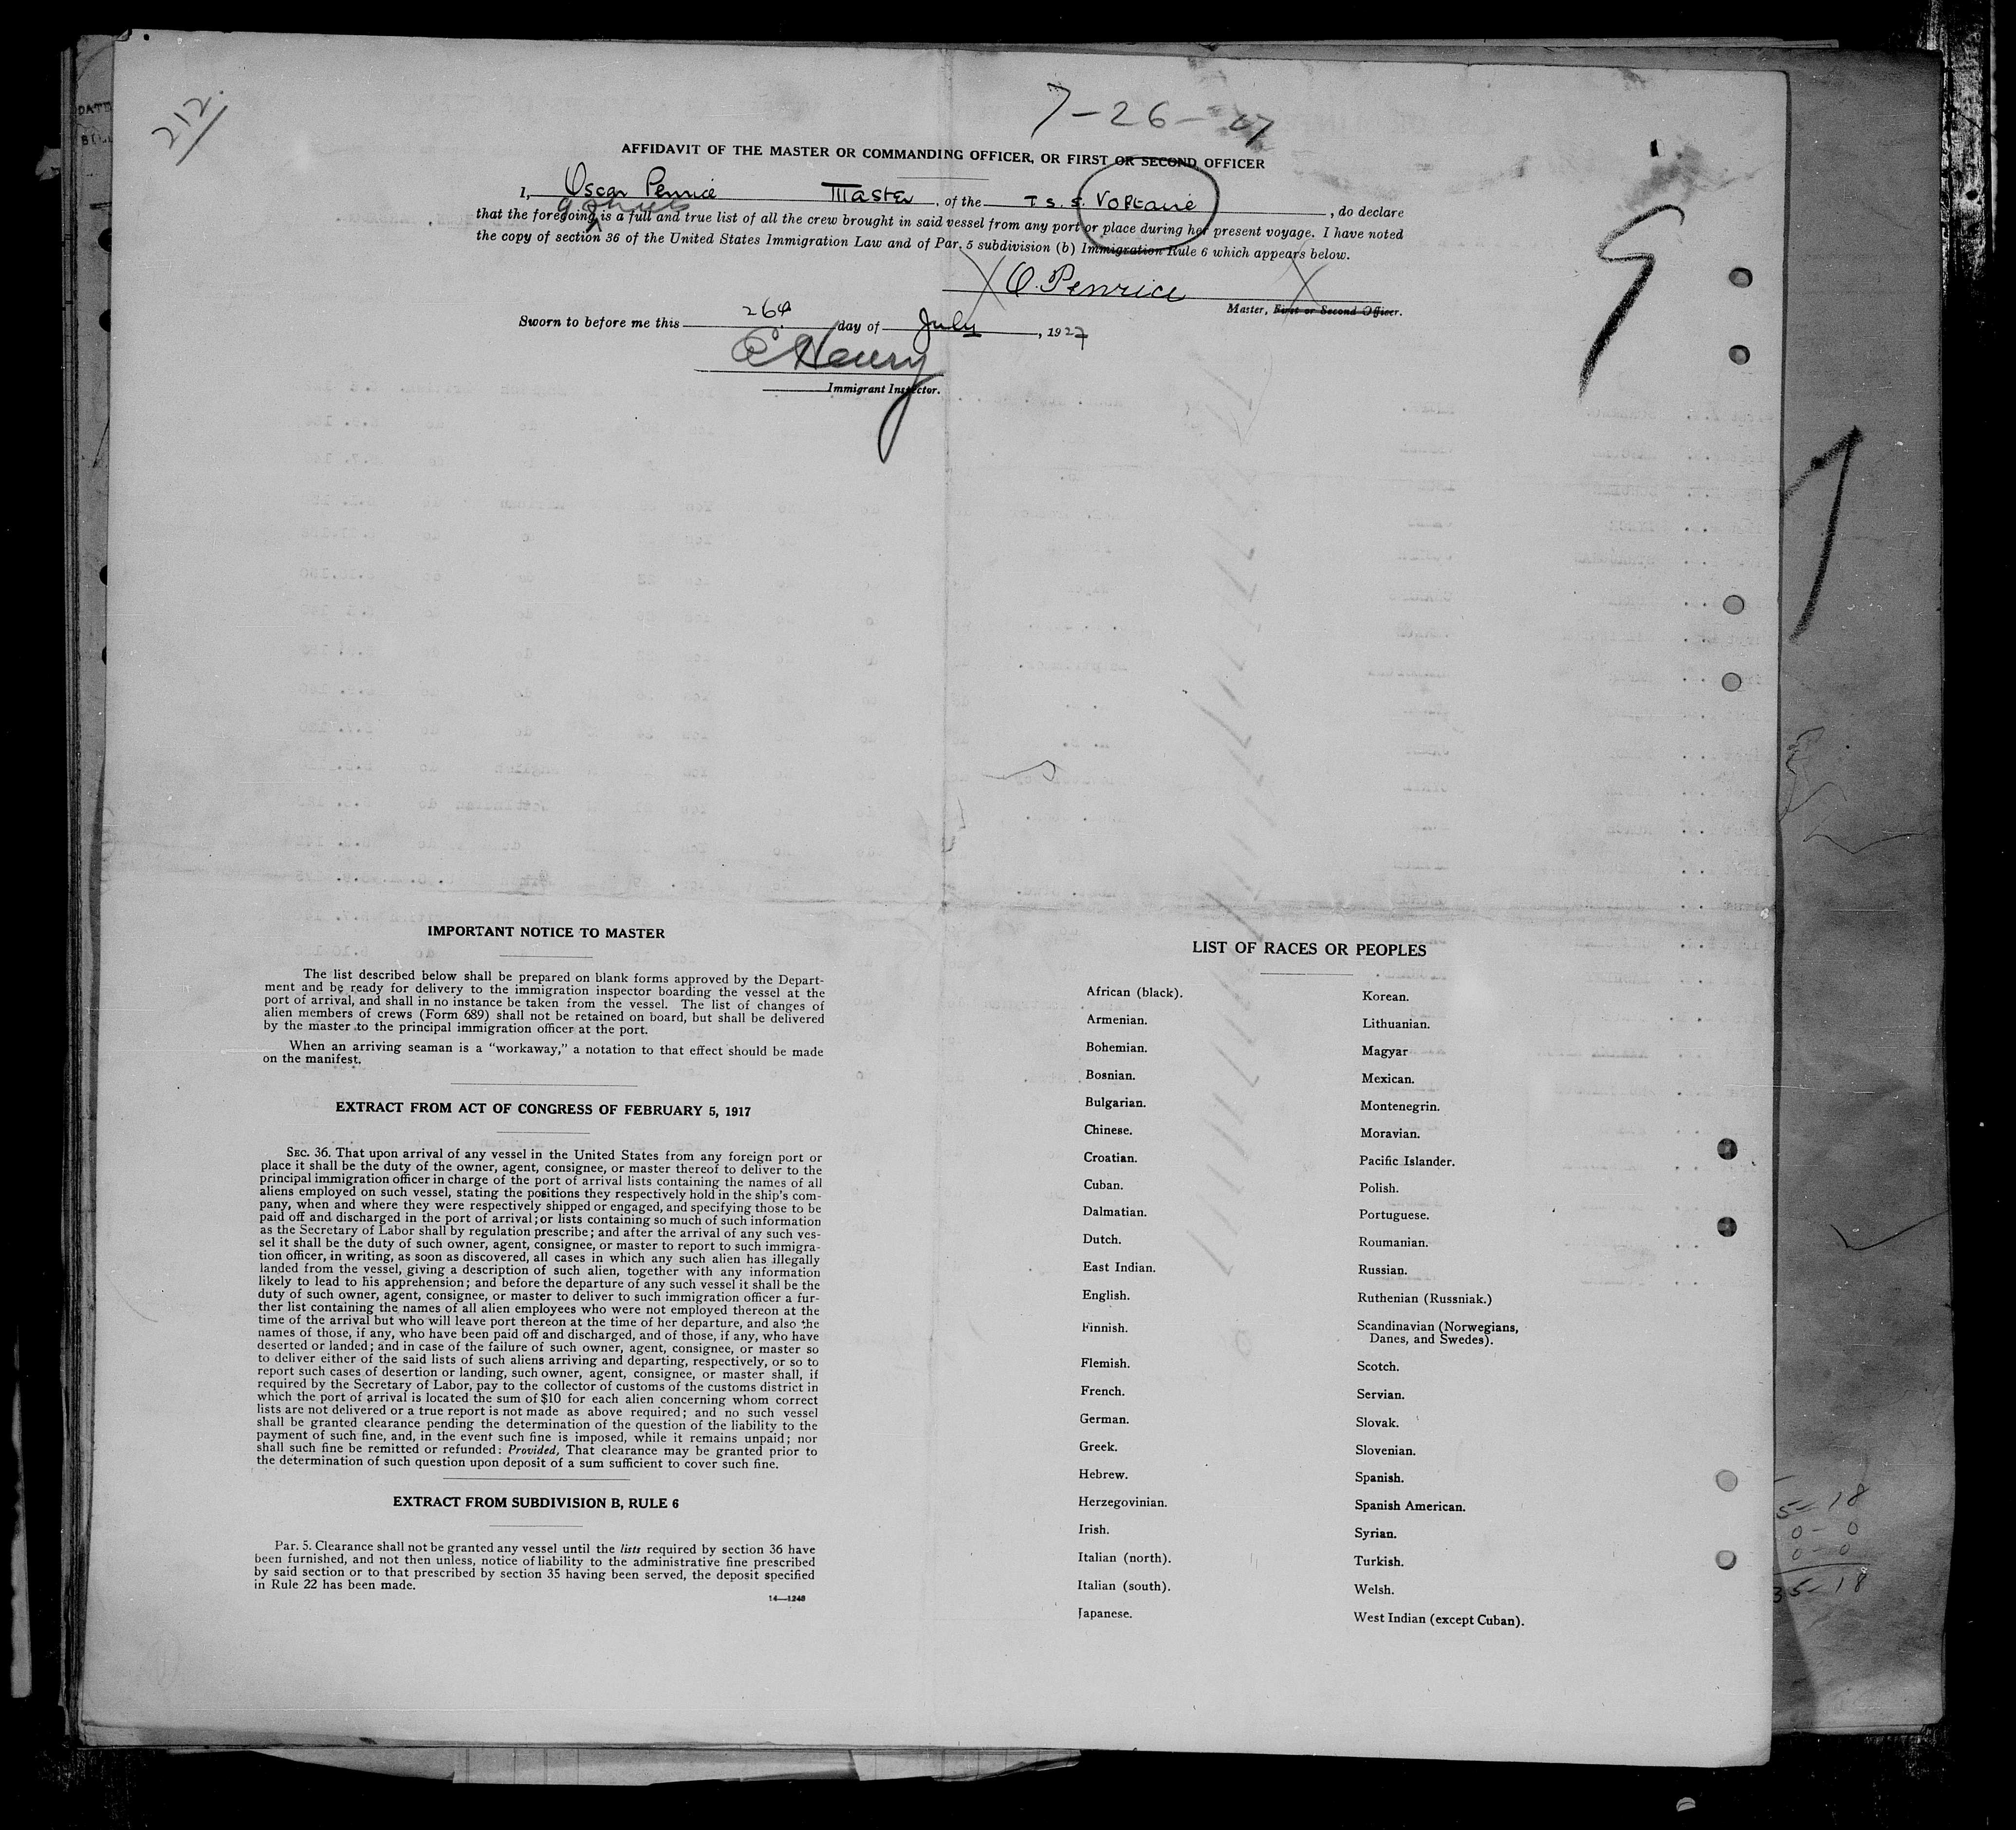 DATE
212.
7-26-27
AFFIDAVIT OF THE MASTER OR COMMANDING OFFICER, OR FIRST OR SECOND OFFICER
I, Oscar Penrice Master, of the T. S. S. Voltaire, do declare
9 sheets
that the foregoing is a full and true list of all the crew brought in said vessel from any port or place during her present voyage. I have noted
the copy of section 36 of the United States Immigration Law and of Par. 5 subdivision (b) Immigration Rule 6 which appears below.
X O. Penrice X
Master, First or Second Officer.
Sworn to before me this 26th day of July, 1927
Henry
Immigrant Inspector.
9
IMPORTANT NOTICE TO MASTER
The list described below shall be prepared on blank forms approved by the Depart-
ment and be ready for delivery to the immigration inspector boarding the vessel at the
port of arrival, and shall in no instance be taken from the vessel. The list of changes of
alien members of crews (Form 689) shall not be retained on board, but shall be delivered
by the master to the principal immigration officer at the port.
When an arriving seaman is a "workaway," a notation to that effect should be made
on the manifest.
EXTRACT FROM ACT OF CONGRESS OF FEBRUARY 5, 1917
SEC. 36. That upon arrival of any vessel in the United States from any foreign port or
place it shall be the duty of the owner, agent, consignee, or master thereof to deliver to the
principal immigration officer in charge of the port of arrival lists containing the names of all
aliens employed on such vessel, stating the positions they respectively hold in the ship's com-
pany, when and where they were respectively shipped or engaged, and specifying those to be
paid off and discharged in the port of arrival; or lists containing so much of such information
as the Secretary of Labor shall by regulation prescribe; and after the arrival of any such ves-
sel it shall be the duty of such owner, agent, consignee, or master to report to such immigra-
tion officer, in writing, as soon as discovered, all cases in which any such alien has illegally
landed from the vessel, giving a description of such alien, together with any information
likely to lead to his apprehension; and before the departure of any such vessel it shall be the
duty of such owner, agent, consignee, or master to deliver to such immigration officer a fur-
ther list containing the names of all alien employees who were not employed thereon at the
time of the arrival but who will leave port thereon at the time of her departure, and also the
names of those, if any, who have been paid off and discharged, and of those, if any, who have
deserted or landed; and in case of the failure of such owner, agent, consignee, or master so
to deliver either of the said lists of such aliens arriving and departing, respectively, or so to
report such cases of desertion or landing, such owner, agent, consignee, or master shall, if
required by the Secretary of Labor, pay to the collector of customs of the customs district in
which the port of arrival is located the sum of $10 for each alien concerning whom correct
lists are not delivered or a true report is not made as above required; and no such vessel
shall be granted clearance pending the determination of the question of the liability to the
payment of such fine, and, in the event such fine is imposed, while it remains unpaid; nor
shall such fine be remitted or refunded: Provided, That clearance may be granted prior to
the determination of such question upon deposit of a sum sufficient to cover such fine.
EXTRACT FROM SUBDIVISION B, RULE 6
Par. 5. Clearance shall not be granted any vessel until the lists required by section 36 have
been furnished, and not then unless, notice of liability to the administrative fine prescribed
by said section or to that prescribed by section 35 having been served, the deposit specified
in Rule 22 has been made.
14—1240
LIST OF RACES OR PEOPLES
African (black).
Armenian.
Bohemian.
Bosnian.
Bulgarian.
Chinese.
Croatian.
Cuban.
Dalmatian.
Dutch.
East Indian.
English.
Finnish.
Flemish.
French.
German.
Greek.
Hebrew.
Herzegovinian.
Irish.
Italian (north).
Italian (south).
Japanese.
Korean.
Lithuanian.
Magyar
Mexican.
Montenegrin.
Moravian.
Pacific Islander.
Polish.
Portuguese.
Roumanian.
Russian.
Ruthenian (Russniak.)
Scandinavian (Norwegians,
Danes, and Swedes).
Scotch.
Servian.
Slovak.
Slovenian.
Spanish.
Spanish American.
Syrian.
Turkish.
Welsh.
West Indian (except Cuban).
5-18
0-0
0-0
35-18